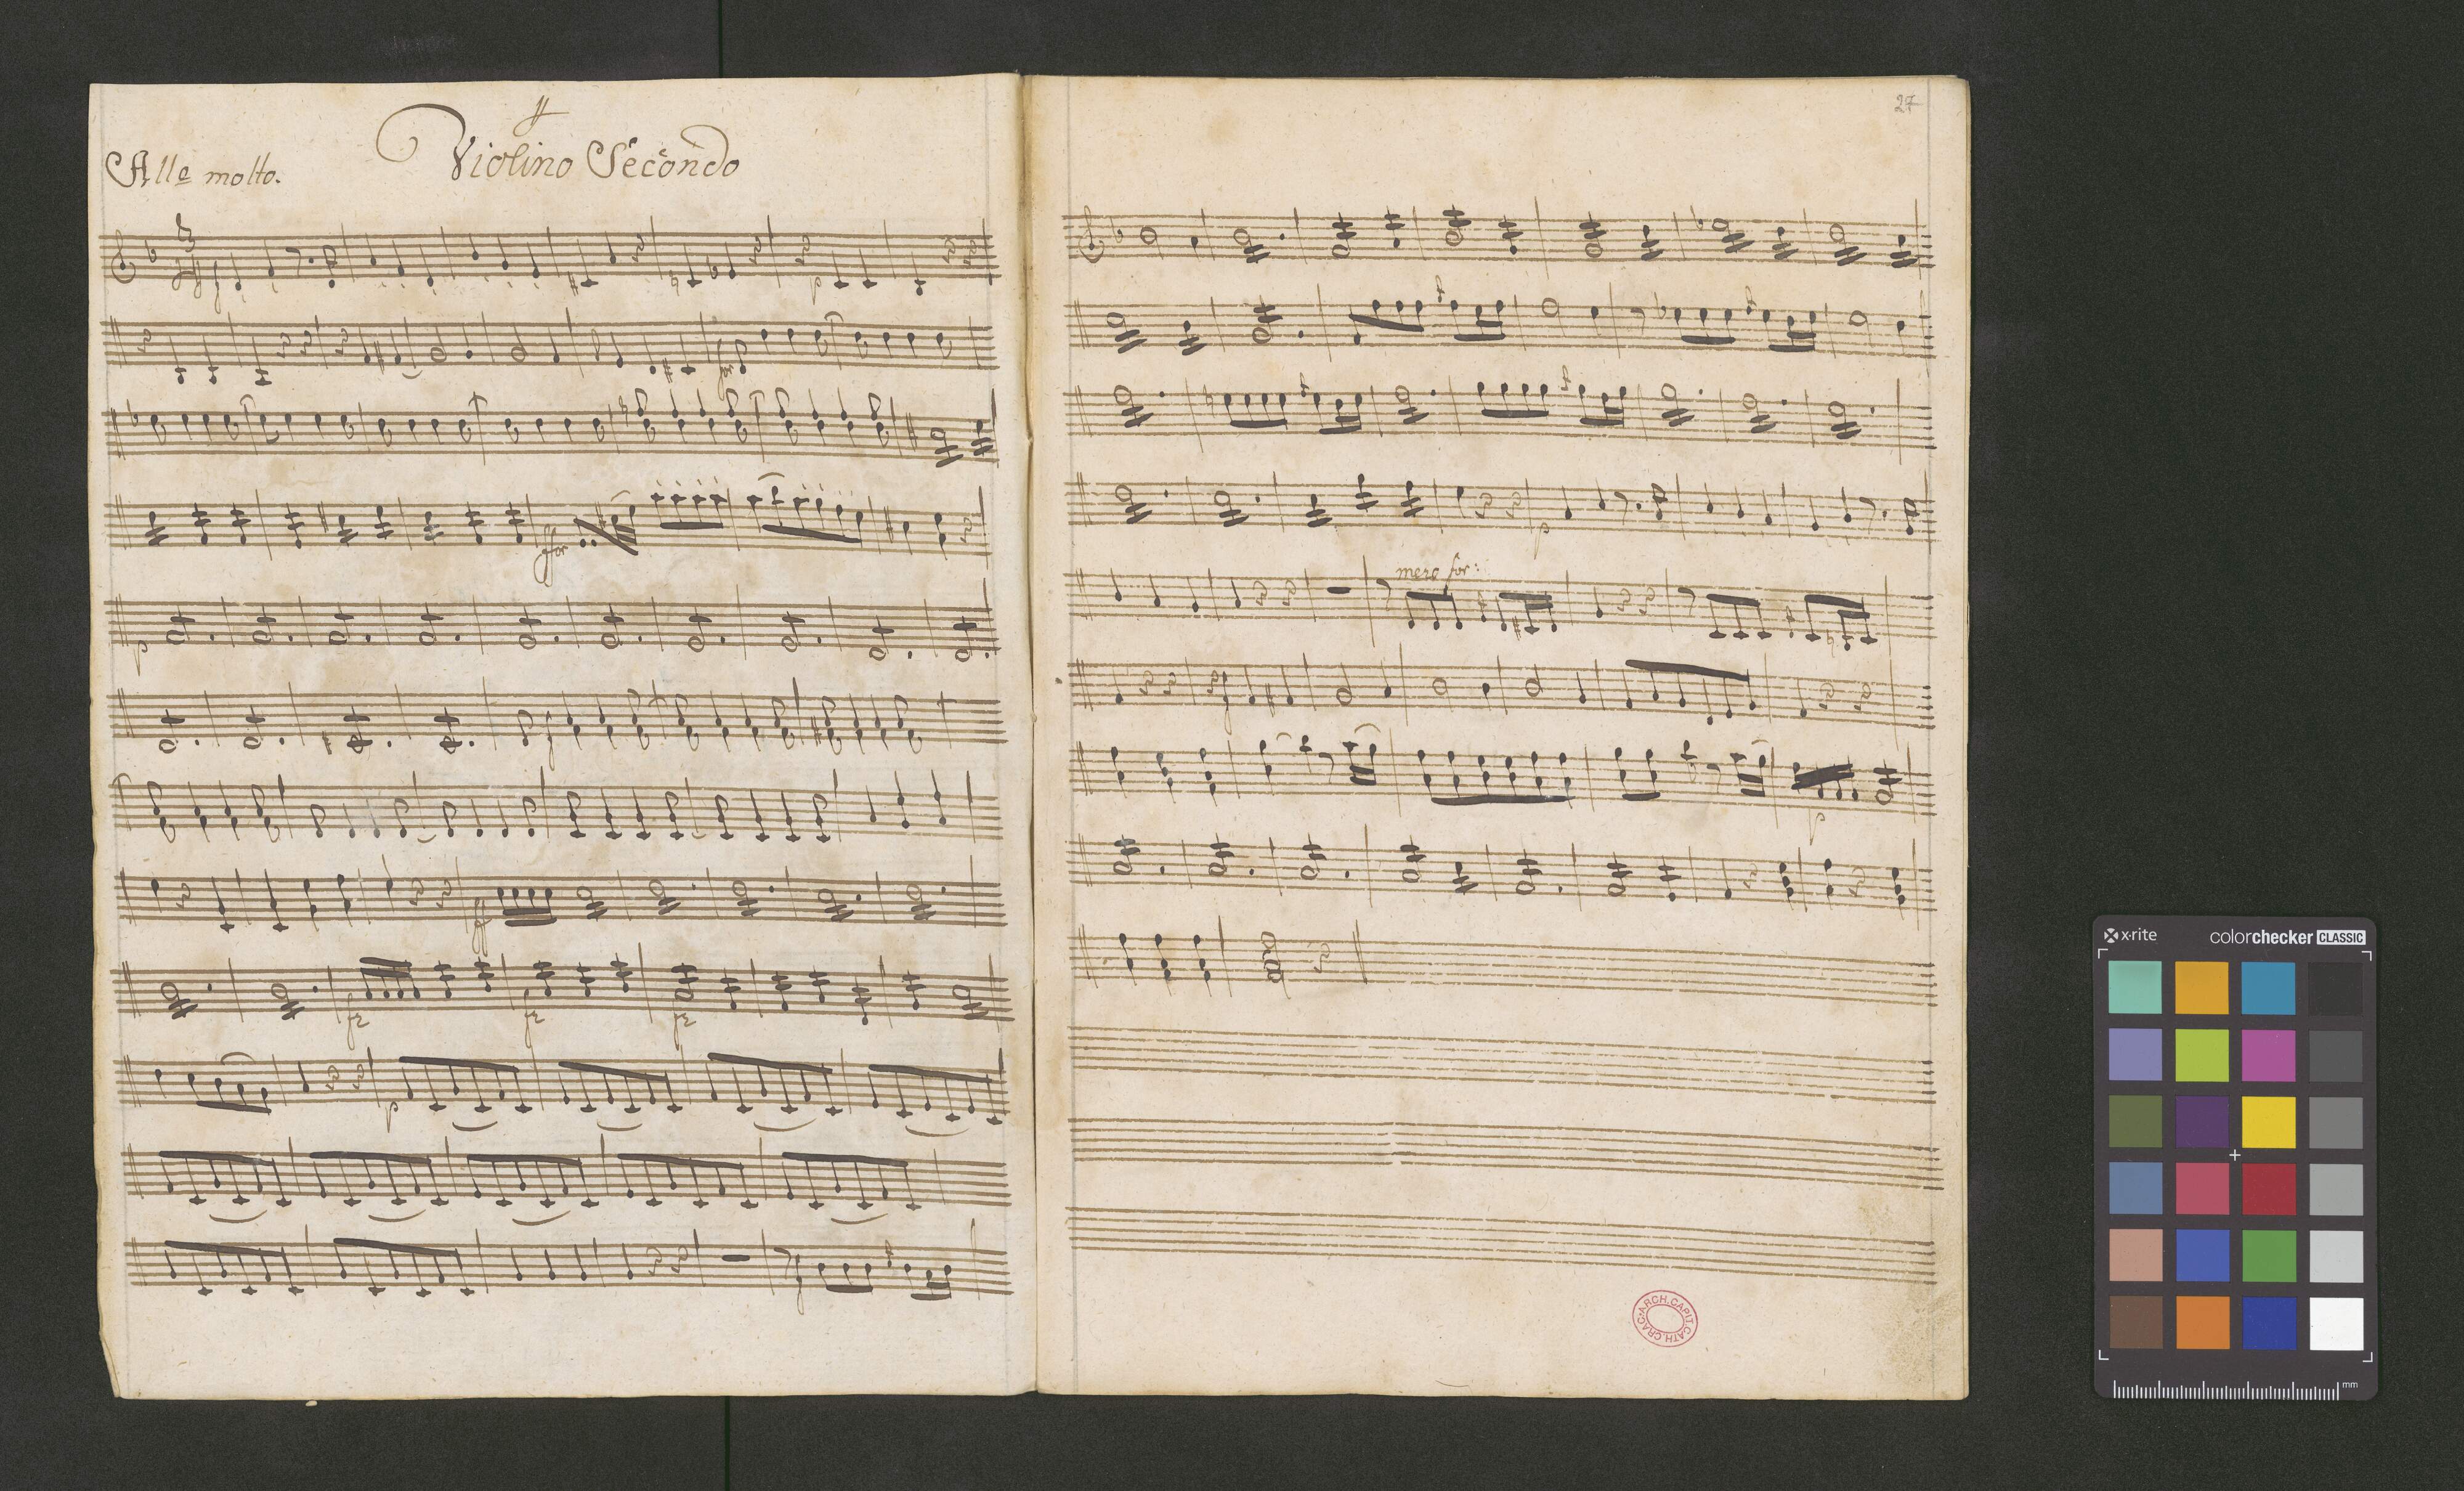 Violino Secondo
Alle molto.
p
ffor
p
ff
fz
fz
fz
p
27
p
mezo for:
p
ARCH. CAPIT. CATH. CRAC.
x·rite
colorchecker CLASSIC
mm